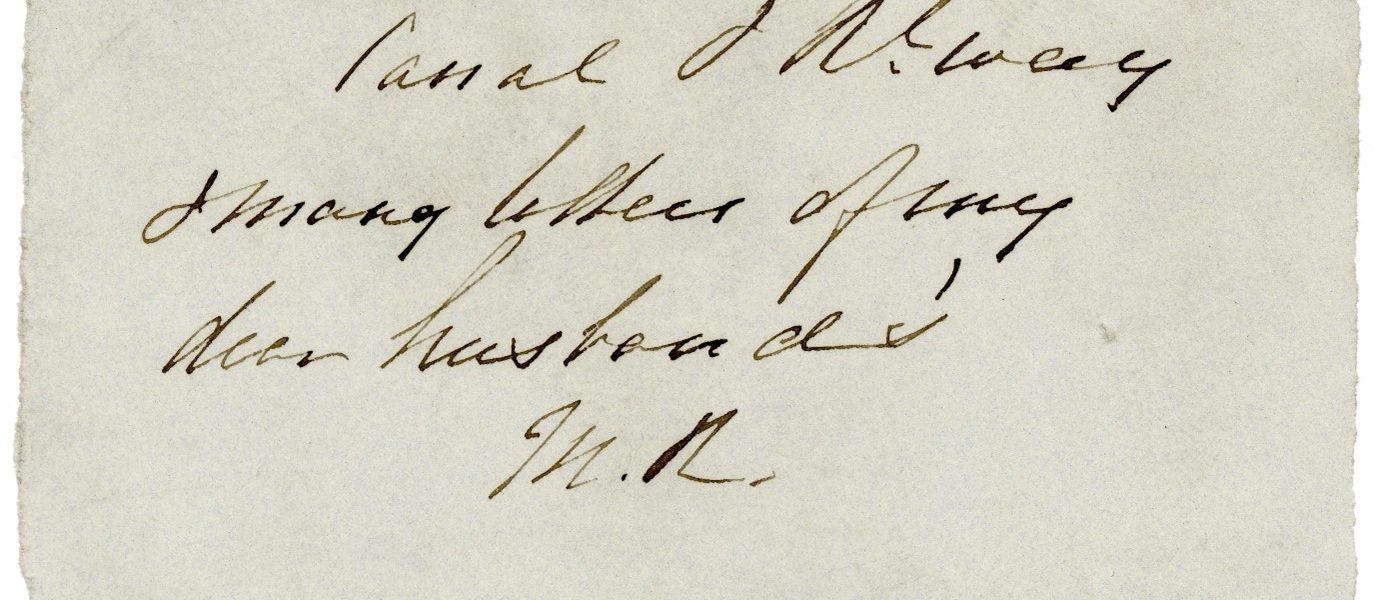 Canal & R.way
& many letters of my
dear husband's
M.R.